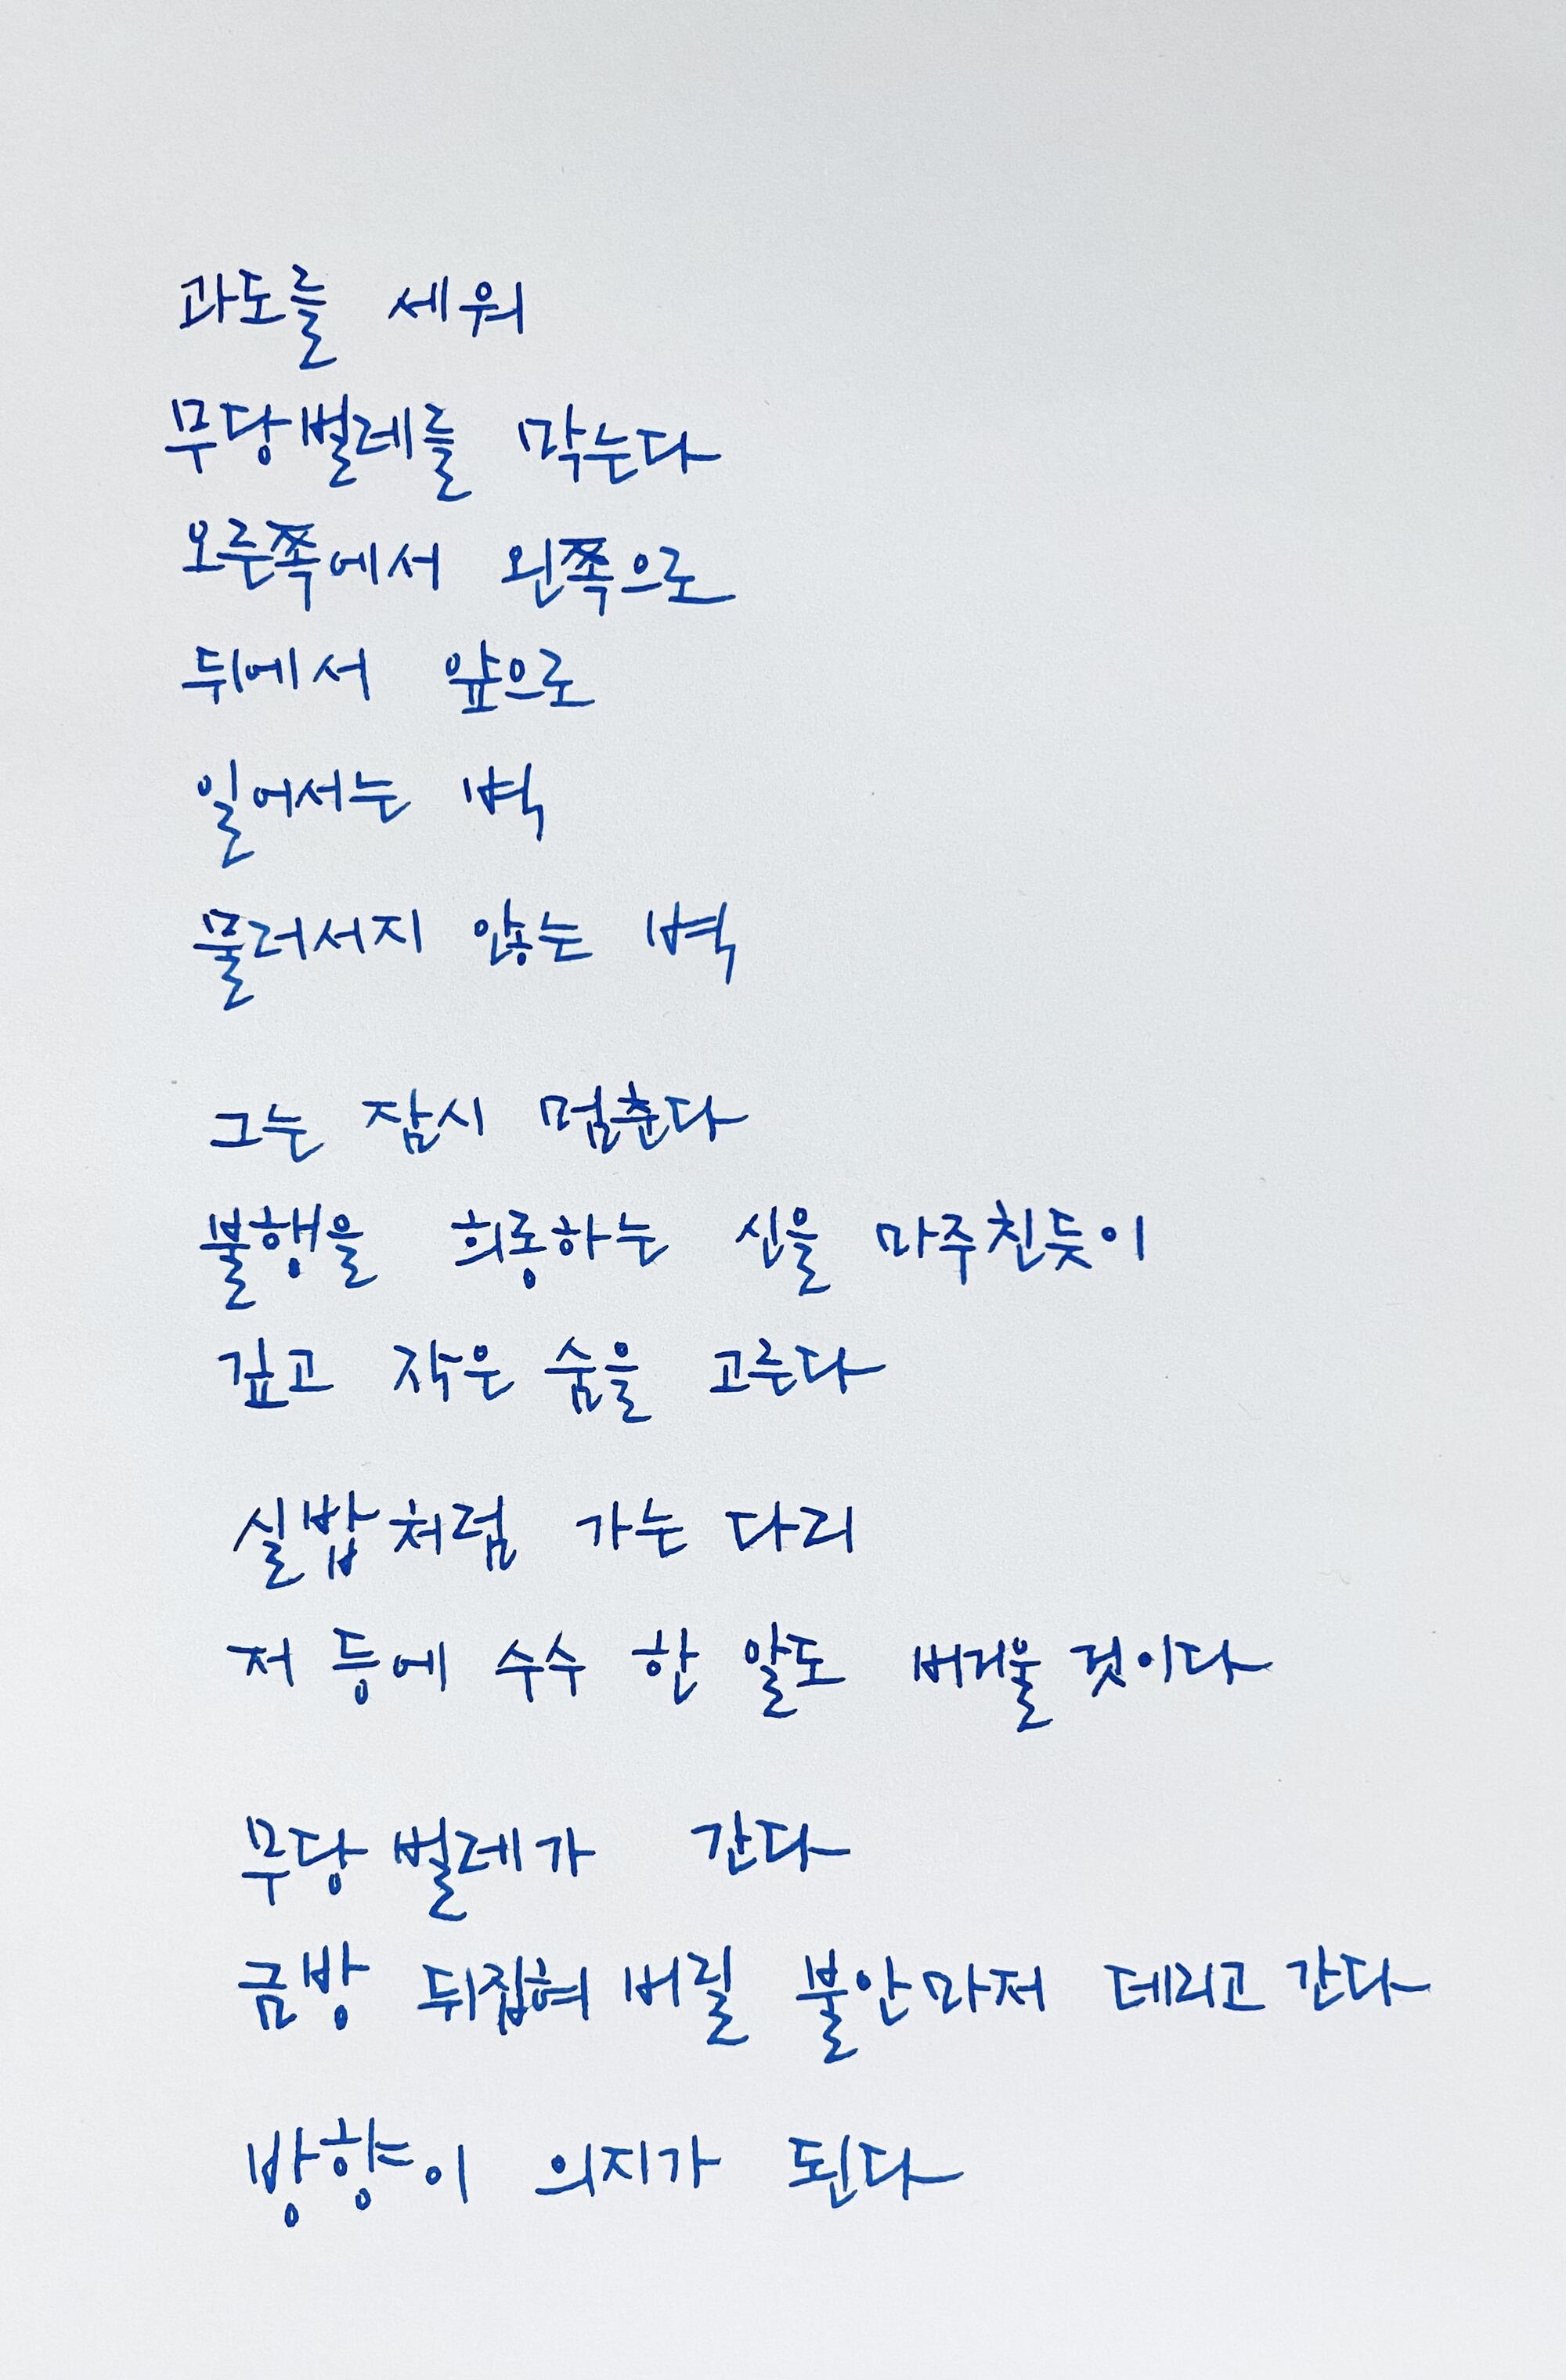 과도를 세워
무당벌레를 막는다
오른쪽에서 왼쪽으로
뒤에서 앞으로
일어서는 벽
물러서지 않는 벽
그는 잠시 멈춘다
불행을 희롱하는 신을 마주친듯이
깊고 작은 숨을 고른다
실밥처럼 가는 다리
저 등에 수수 한 알도 버거울 것이다
무당벌레가 간다
금방 뒤집혀 버릴 불안마저 데리고 간다
방향이 의지가 된다